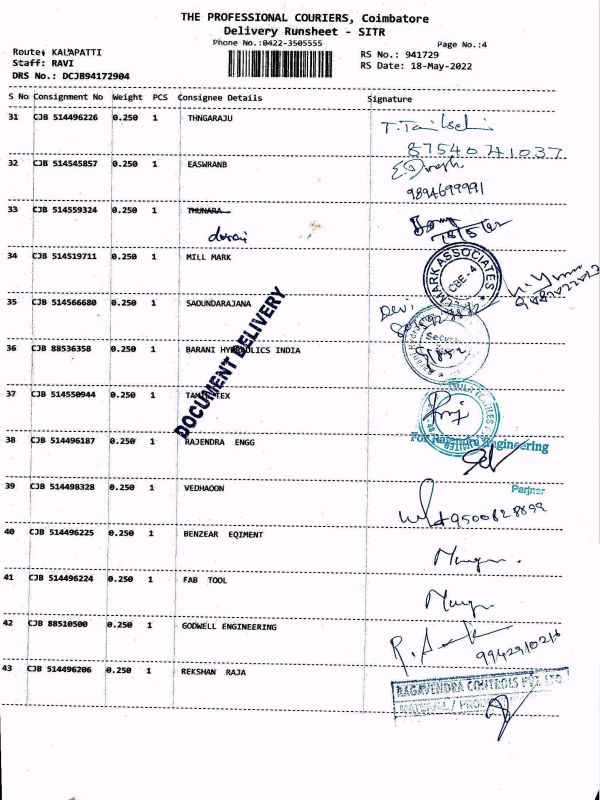 THE PROFESSIONAL COURIERS, Coimbatore
Delivery Runsheet - SITR
Phone No.:0422-3505555
Page No.:4
Route: KALAPATTI
RS No.: 941729
Staff: RAVI
RS Date: 18-May-2022
DRS No.: DCJB94172904
S No Consignment No Weight PCS Consignee Details Signature
31 CJB 514496226 0.250 1 THNGARAJU
87540741037
32 CJB 514545857 0.250 1 EASWRANB
9894699991
33 CJB 514559324 0.250 1 THUNARA
durai
34 CJB 514519711 0.250 1 MILL MARK
MARK ASSOCIATES
CBE-4
35 CJB 514566680 0.250 1 SAOUNDARAJANA
Devi
36 CJB 88536358 0.250 1 BARANI HYDROULICS INDIA
DOCUMENT DELIVERY
37 CJB 514550944 0.250 1 TAMIL TEX
38 CJB 514496187 0.250 1 RAJENDRA ENGG
For Rajendra Engineering
Partner
39 CJB 514498328 0.250 1 VEDHAOON
9500828899
40 CJB 514496225 0.250 1 BENZEAR EQIMENT
41 CJB 514496224 0.250 1 FAB TOOL
42 CJB 88510500 0.250 1 GODWELL ENGINEERING
9942910216
43 CJB 514496206 0.250 1 REKSHAN RAJA
RAGAVENDRA CONTROLS PVT LTD
MATERIAL /